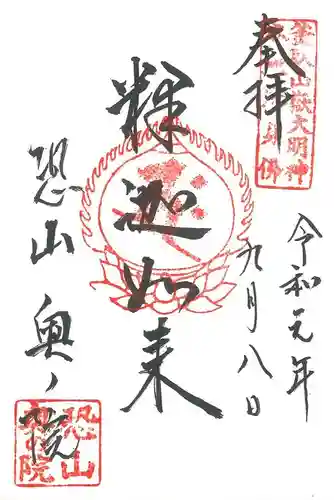 奉拝
釜臥山嶽大明神
令和元年
九月八日
釈迦如来
恐山奥ノ院
恐山
奥院